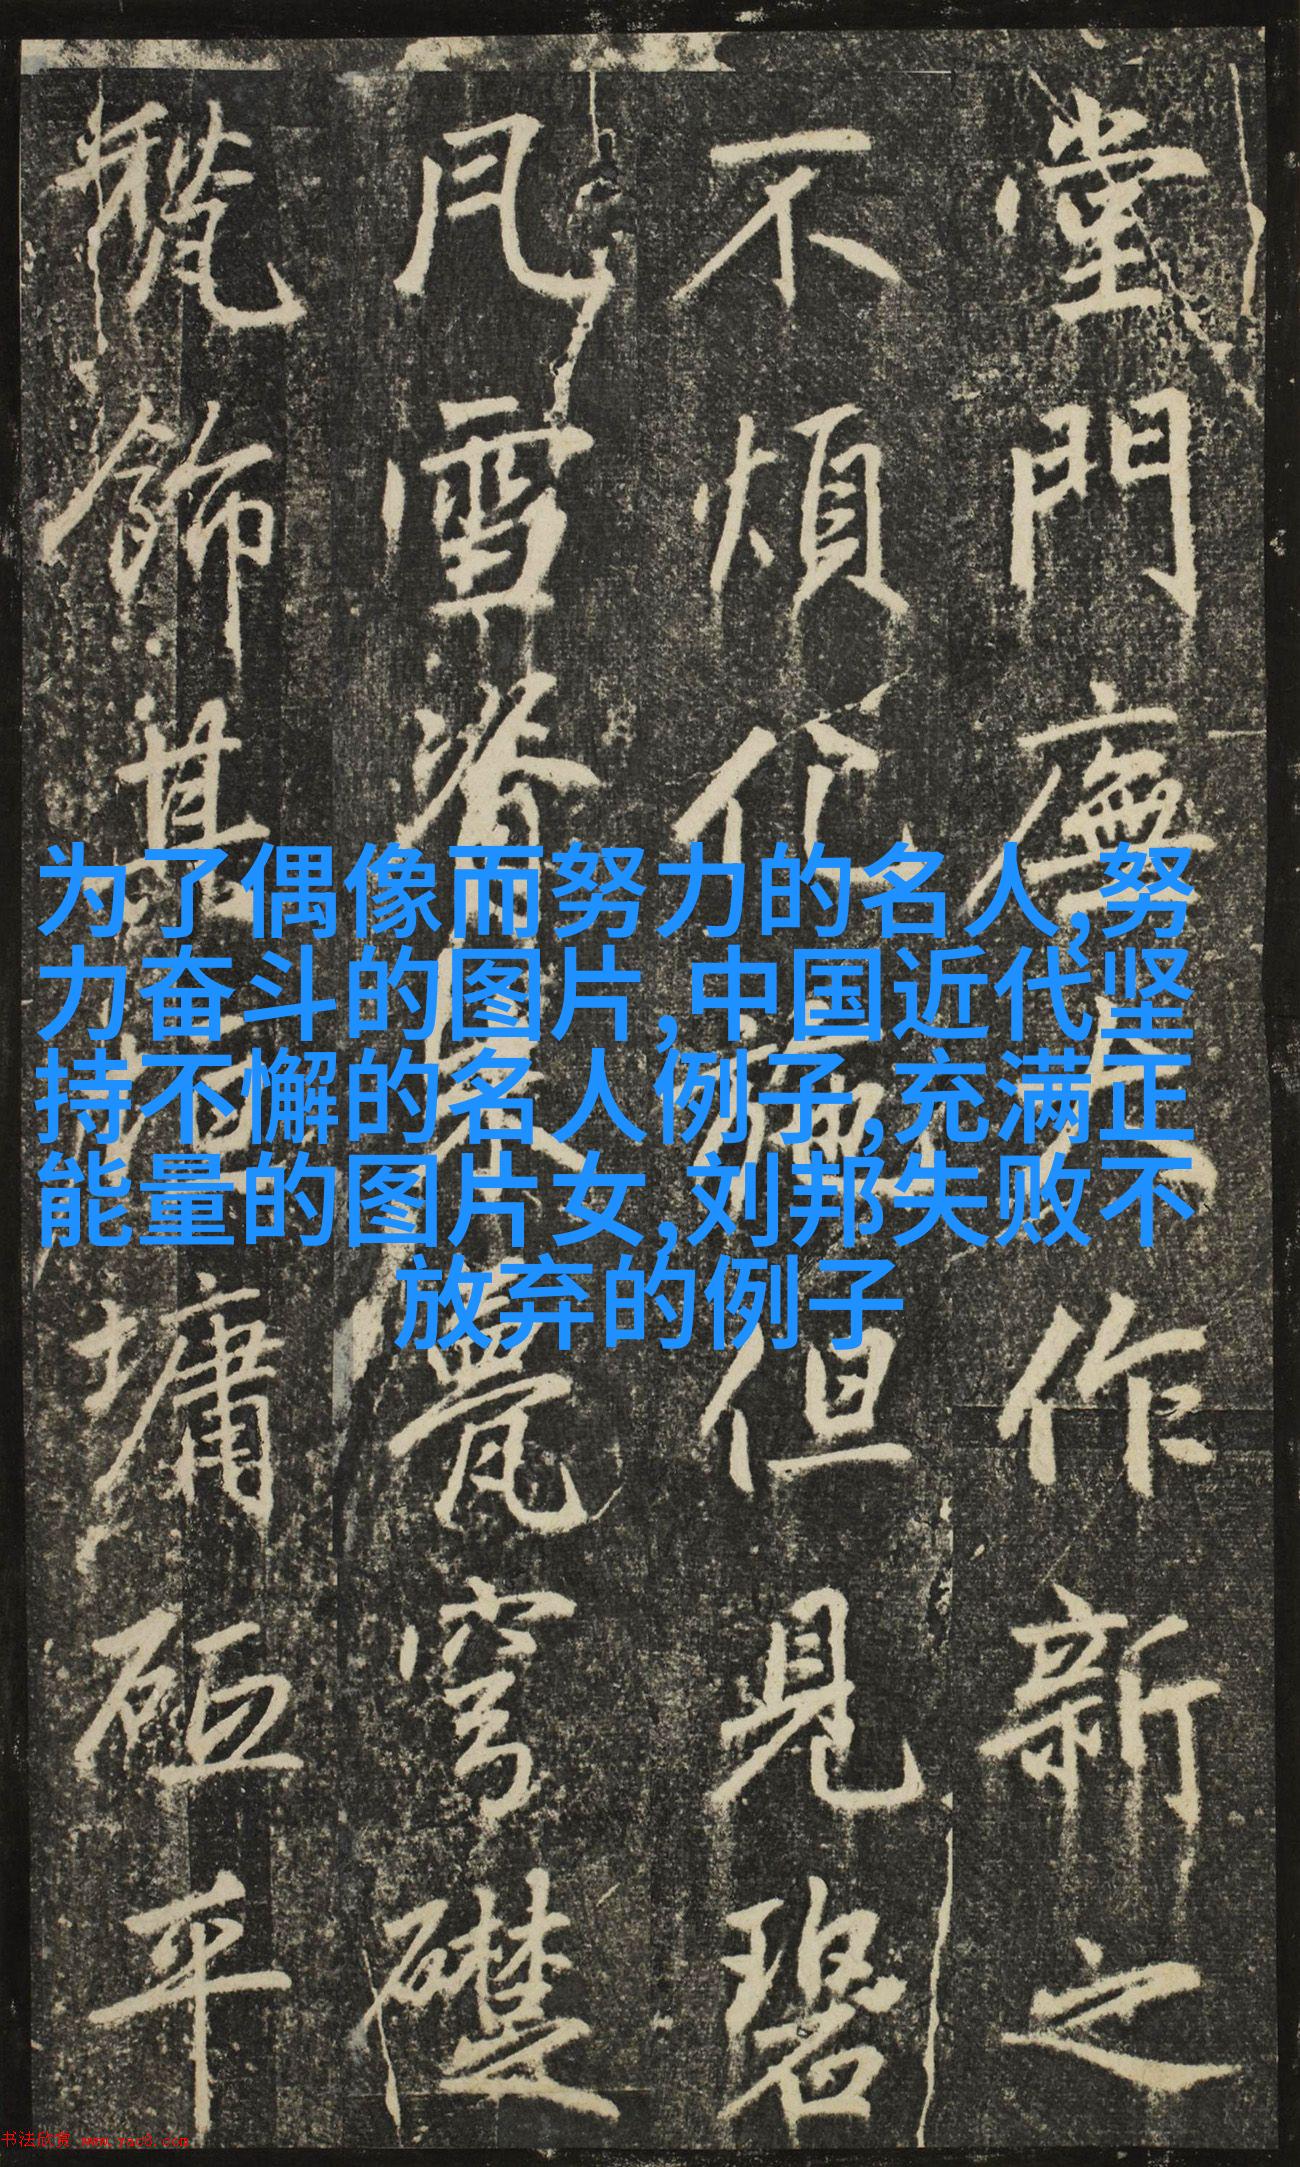 堂門廡大作新之
不煩仳 但見碧
凡雪脊 甍穹礎
甃飾其 墉砠平
为了偶像而努力的名人,努
力奋斗的图片,中国近代坚
持不懈的名人例子,充满正
能量的图片女,刘邦失败不
放弃的例子
书法欣赏 www.yac8.com